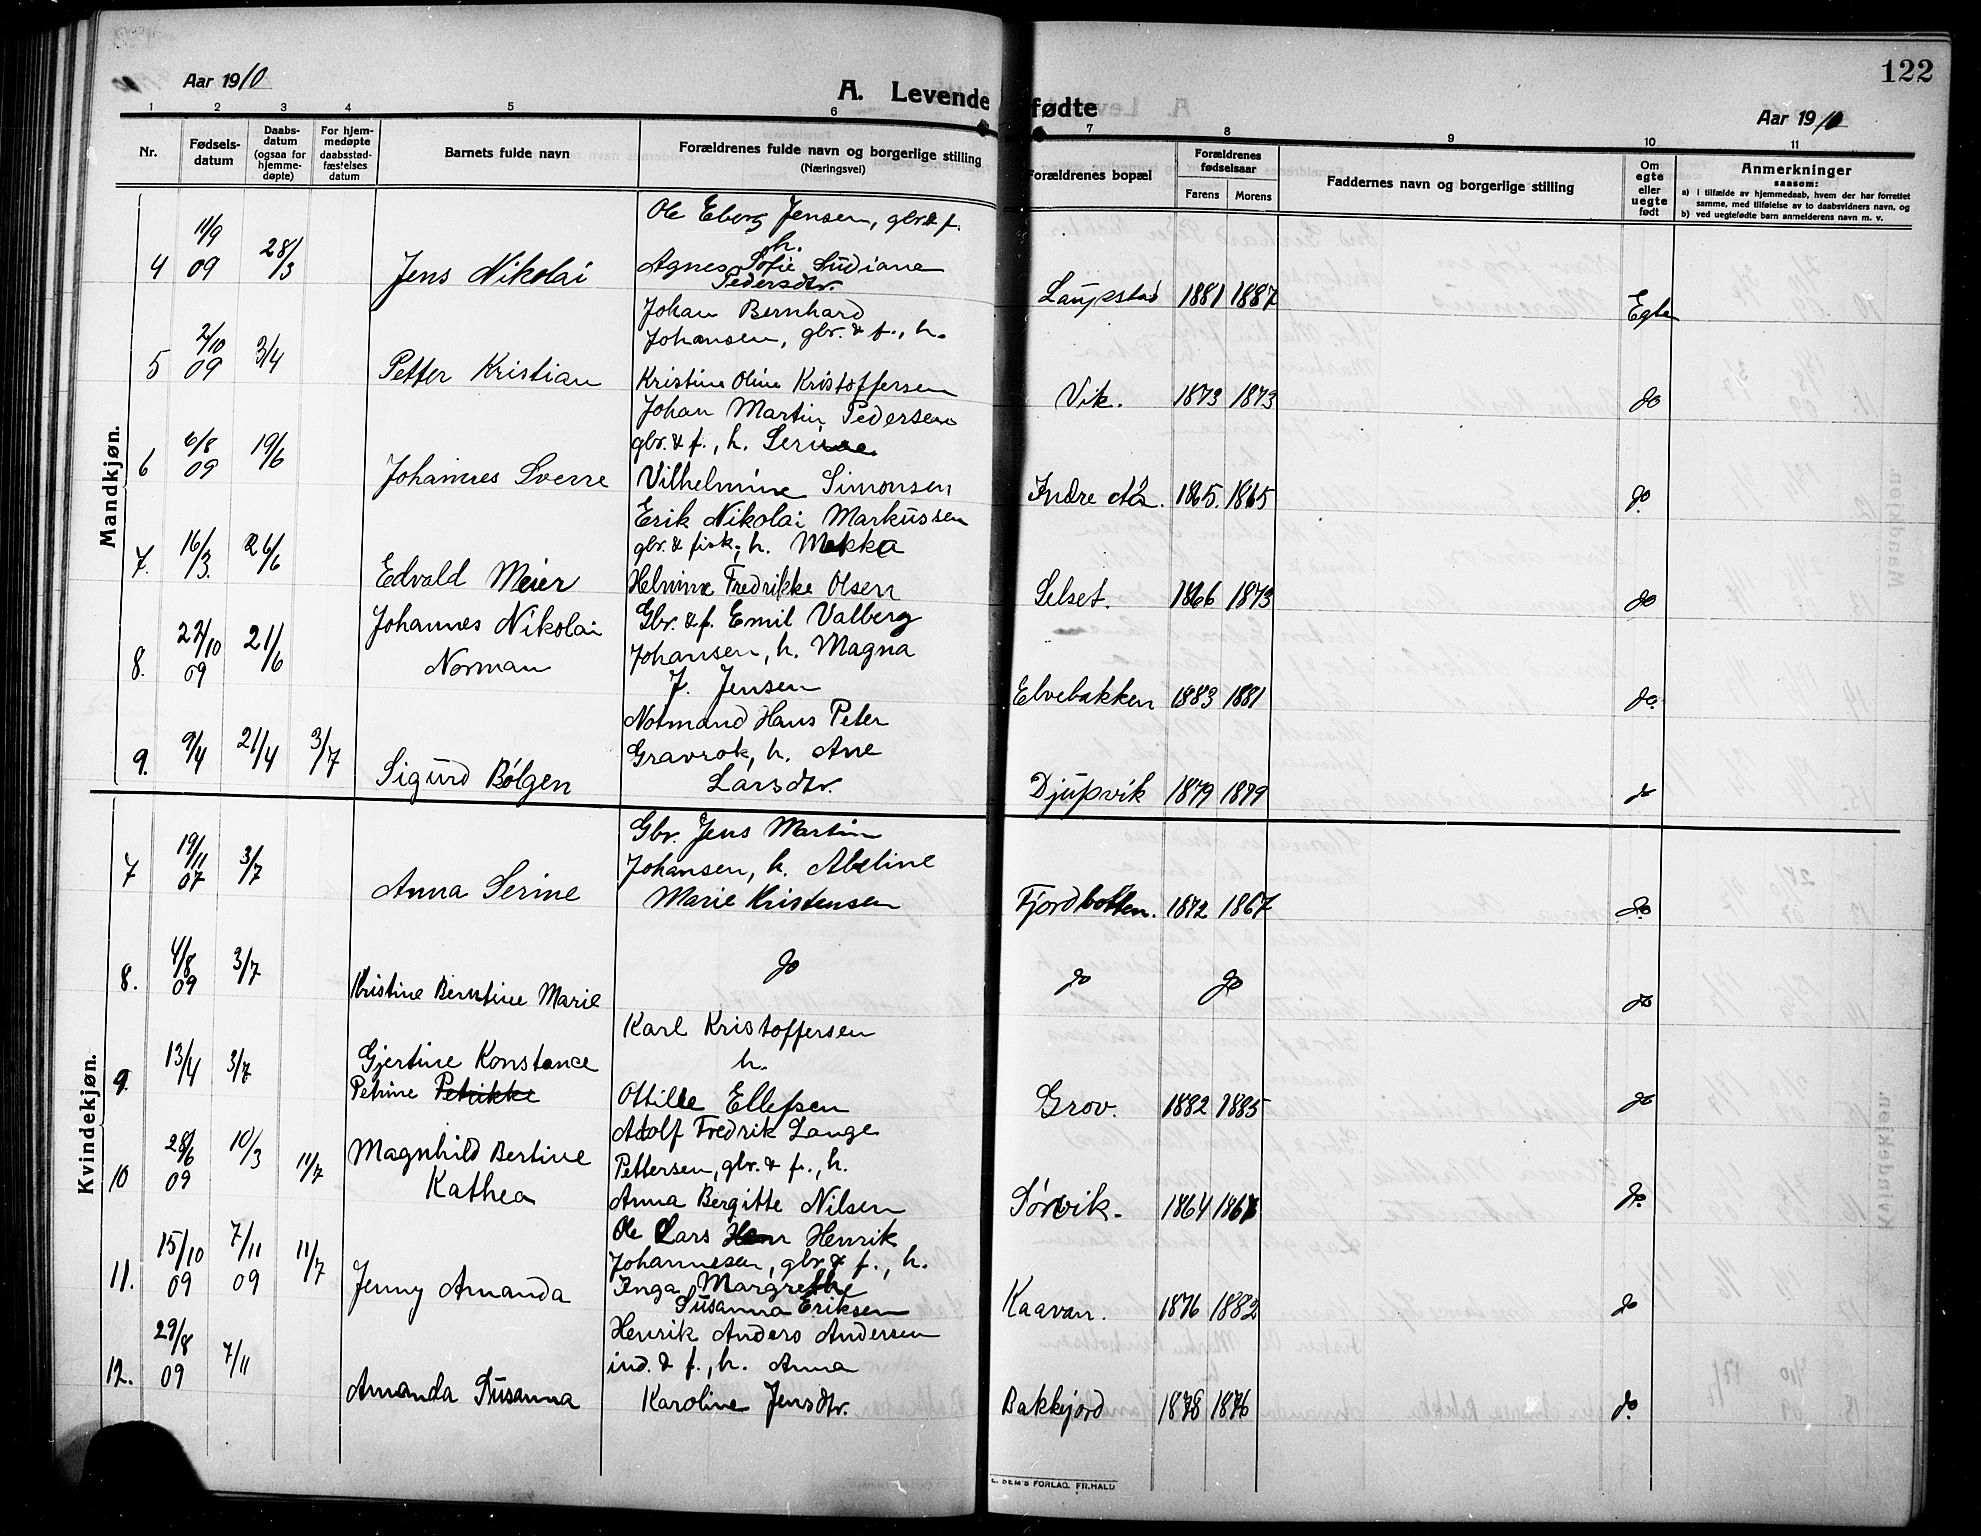 122
Aar 1910
A. Levende fødte
Aar 1910
1 2 3 4 5 6 7 8 9 10 11
Nr.
Fødsels-
datum
Daabs-
datum
(ogsaa for
hjemme-
døpte)
For hjem-
medøpte
daabsstad-
fæstelses
datum
Barnets fulde navn
Forældrenes fulde navn og borgerlige stilling
(Næringsvei)
Forældrenes bopæl
Forældrenes
fødselsaar
Farens Morens
Faddernes navn og borgerlige stilling
Om
egte
eller
uegte
født
Anmerkninger
saasom:
a) i tilfælde av hjemmedaab, hvem der har forrettet
samme, med tilføielse av to daabsvidners navn, og
b) ved uegtefødte barn anmelderens navn m. v.
Mandkjøn.
Ole Eberg Jensen, gbr. & f.
h.
4 11/9 09 28/3 Jens Nikolai Agnes Sofie Ludiane
Pedersdtr. Laupstad 1881 1887 Egte
Johan Bernhard
Johansen, gbr. & f., h.
5 2/10 09 3/4 Petter Kristian Kristine Oline Kristoffersen Vik. 1873 1873 do
Johan Martin Pedersen
gbr. & f., h. Serine
6 6/8 09 19/6 Johannes Sverre Vilhelmine Simonsen Indre Aa. 1865. 1865 do.
Erik Nikolai Markussen
gbr. & fisk., h. Mekka
7. 16/3. 26/6 Edvald Meier Helmine Fredrikke Olsen Selset. 1866 1873 do
Johannes Nikolai Gbr. & f. Emil Valberg
8. 22/10 09 21/6 Norman Johansen, h. Magna
J. Jensen Elvebakken 1883 1881 do.
Notmand Hans Peter
9. 9/4 21/4 3/7 Sigurd Bölgen Gravrok, h. Ane
Larsdtr. Djupvik 1879 1879 do
Kvindekjøn.
Gbr. Jens Martin
7 19/11 07 3/7 Anna Serine Johansen, h. Abeline
Marie Kristensen Fjordbotten. 1872 1867 do.
8. 4/8 09 3/7 Kristine Berntine Marie do do do do
Karl Kristoffersen
9. 13/4 3/7 Gjertine Konstance h.
Petrine Petrikke Ottille Ellefsen Grov. 1882 1885 do
Adolf Fredrik Lange
10 28/6 09 10/3 11/7 Magnhild Bertine Pettersen, gbr. & f., h.
Kathea Anna Bergitte Nilsen Sørvik. 1864 1867 do.
Ole Lars Henrik
11. 15/10 09 7/11 09 11/7 Jenny Amanda Johannesen, gbr. & f., h.
Inga Margrethe
Susanna Eriksen Kaavan. 1876 1882 do
Henrik Anders Andersen
12. 29/8 09 7/11 Amanda Susanna ind. & f., h. Anna
Karoline Jensdtr. Bakkejord 1878 1876 do.
SEM'S FORLAG, FR.HALD